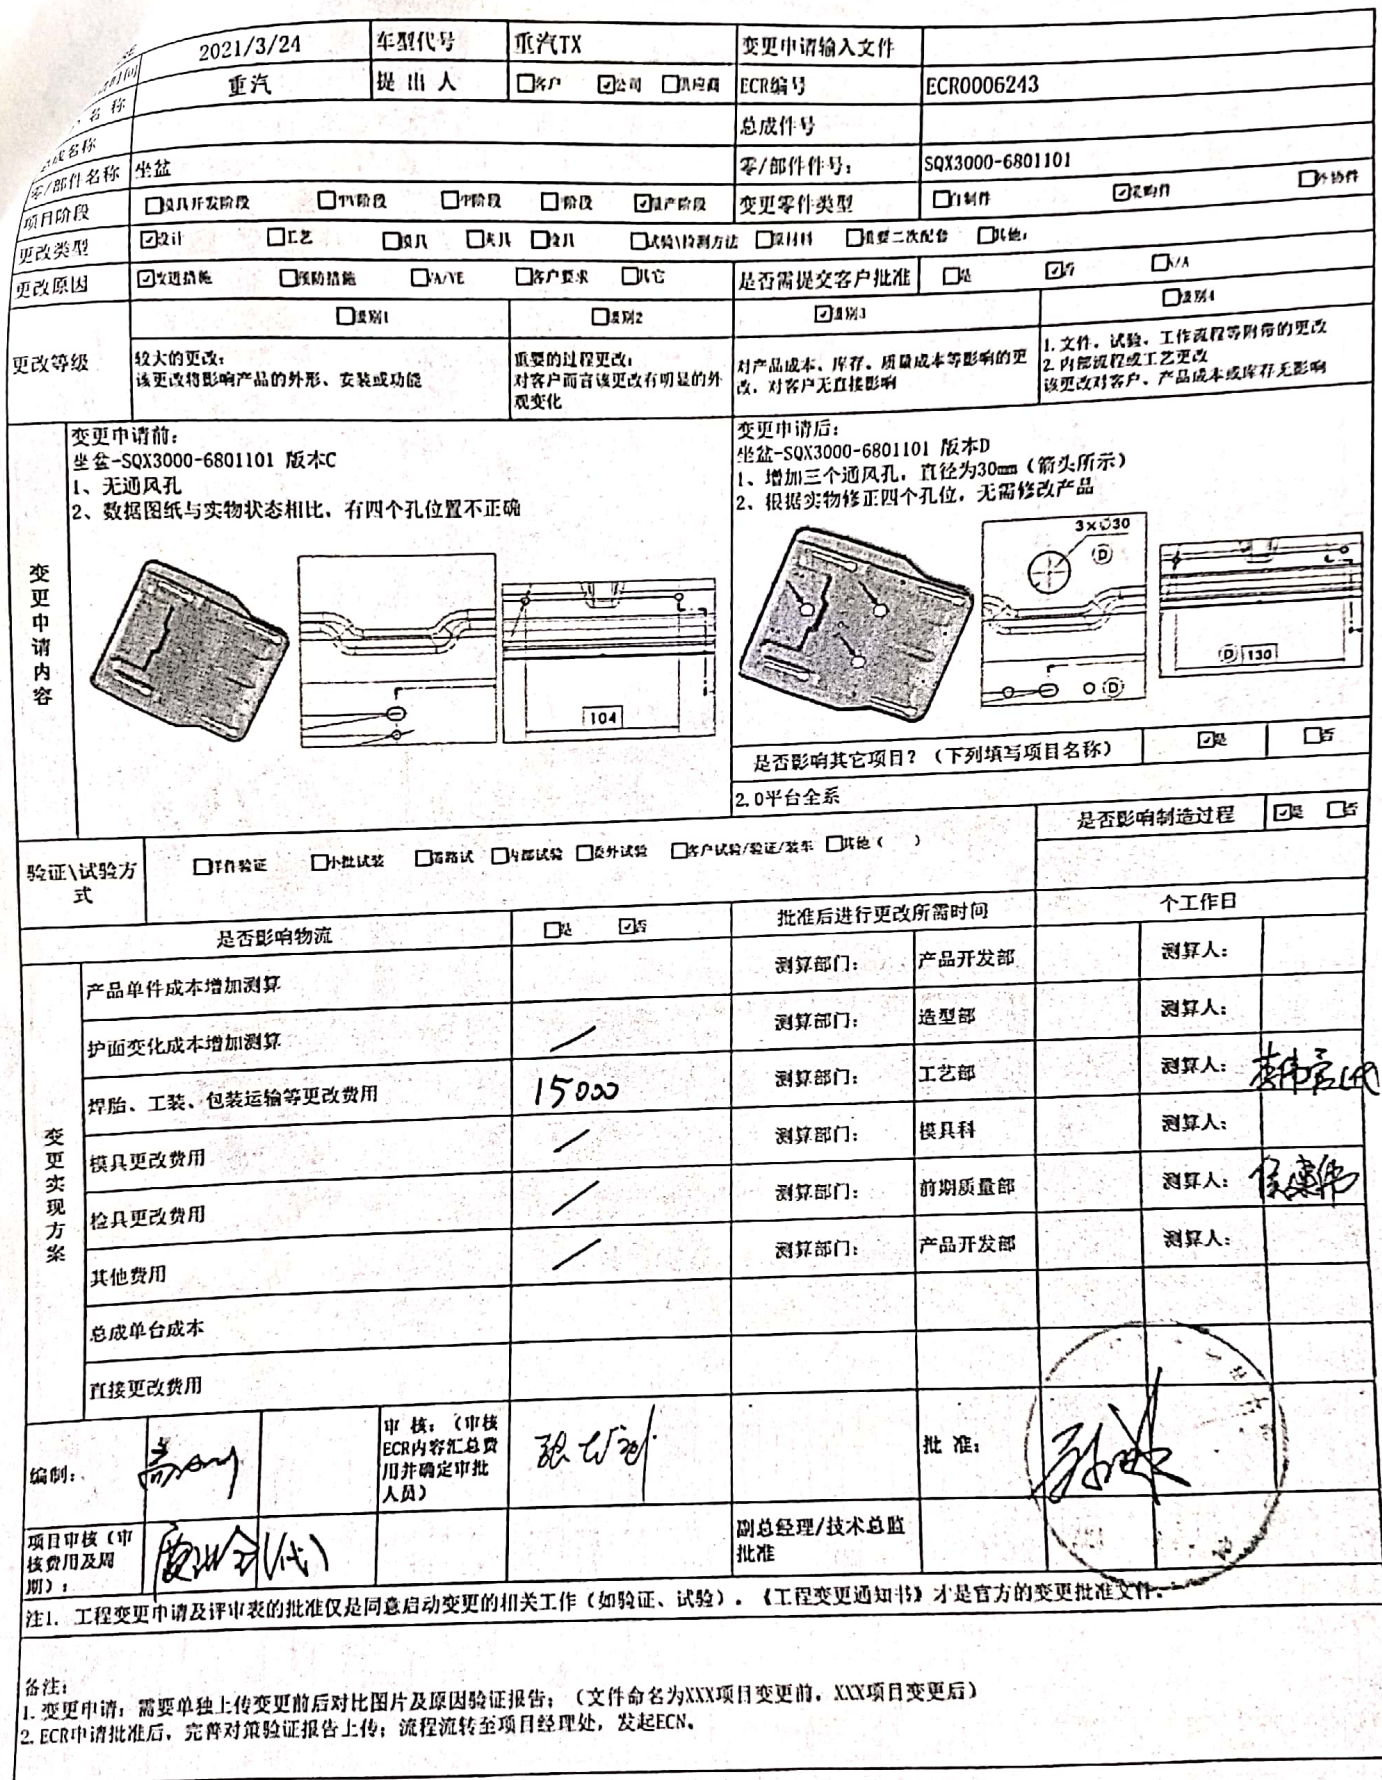 2021/3/24 车型代号 重汽TX 变更申请输入文件
重汽 提出人 □客户 ☑公司 □供应商 ECR编号 ECR0006243
名称
总成名称 总成件号
零/部件名称 坐盆 零/部件件号: SQX3000-6801101
项目阶段 □模具开发阶段 □TTV阶段 □PP阶段 □P阶段 ☑量产阶段 变更零件类型 □自制件 ☑采购件 □外协件
更改类型 ☑设计 □工艺 □模具 □夹具 □检具 □试验\检测方法 □原材料 □重要二次配套 □其他:
更改原因 ☑改进措施 □预防措施 □VA/VE □客户要求 □其它 是否需提交客户批准 □是 ☑否 □N/A
更改等级 □级别1 □级别2 ☑级别3 □级别4
较大的更改:
该更改将影响产品的外形、安装或功能
重要的过程更改:
对客户而言该更改有明显的外
观变化
对产品成本、库存、质量成本等影响的更
改，对客户无直接影响
1.文件、试验、工作流程等附带的更改
2.内部流程或工艺更改
该更改对客户、产品成本或库存无影响
变更申请内容
变更申请前:
坐盆-SQX3000-6801101 版本C
1、无通风孔
2、数据图纸与实物状态相比，有四个孔位置不正确
104
变更申请后:
坐盆-SQX3000-6801101 版本D
1、增加三个通风孔，直径为30mm（箭头所示）
2、根据实物修正四个孔位，无需修改产品
3×∅30
D
D
D 130
是否影响其它项目？（下列填写项目名称） ☑是 □否
2.0平台全系
验证\试验方
式
□样件验证 □小批试装 □道路试 □内部试验 □委外试验 □客户试验/验证/装车 □其他（ ）
是否影响制造过程 ☑是 □否
是否影响物流 □是 ☑否 批准后进行更改所需时间 个工作日
变更实现方案
产品单件成本增加测算 测算部门: 产品开发部 测算人:
护面变化成本增加测算 / 测算部门: 造型部 测算人:
焊胎、工装、包装运输等更改费用 15000 测算部门: 工艺部 测算人:
模具更改费用 / 测算部门: 模具科 测算人:
检具更改费用 / 测算部门: 前期质量部 测算人:
其他费用 / 测算部门: 产品开发部 测算人:
总成单台成本
直接更改费用
编制:
审 核:（审核
ECR内容汇总费
用并确定审批
人员）
批 准:
项目审核（审
核费用及周
期）:
(代)
副总经理/技术总监
批准
注1. 工程变更申请及评审表的批准仅是同意启动变更的相关工作（如验证、试验）。《工程变更通知书》才是官方的变更批准文件。
备注:
1.变更申请: 需要单独上传变更前后对比图片及原因验证报告;（文件命名为XXX项目变更前，XXX项目变更后）
2.ECR申请批准后，完善对策验证报告上传; 流程流转至项目经理处，发起ECN。